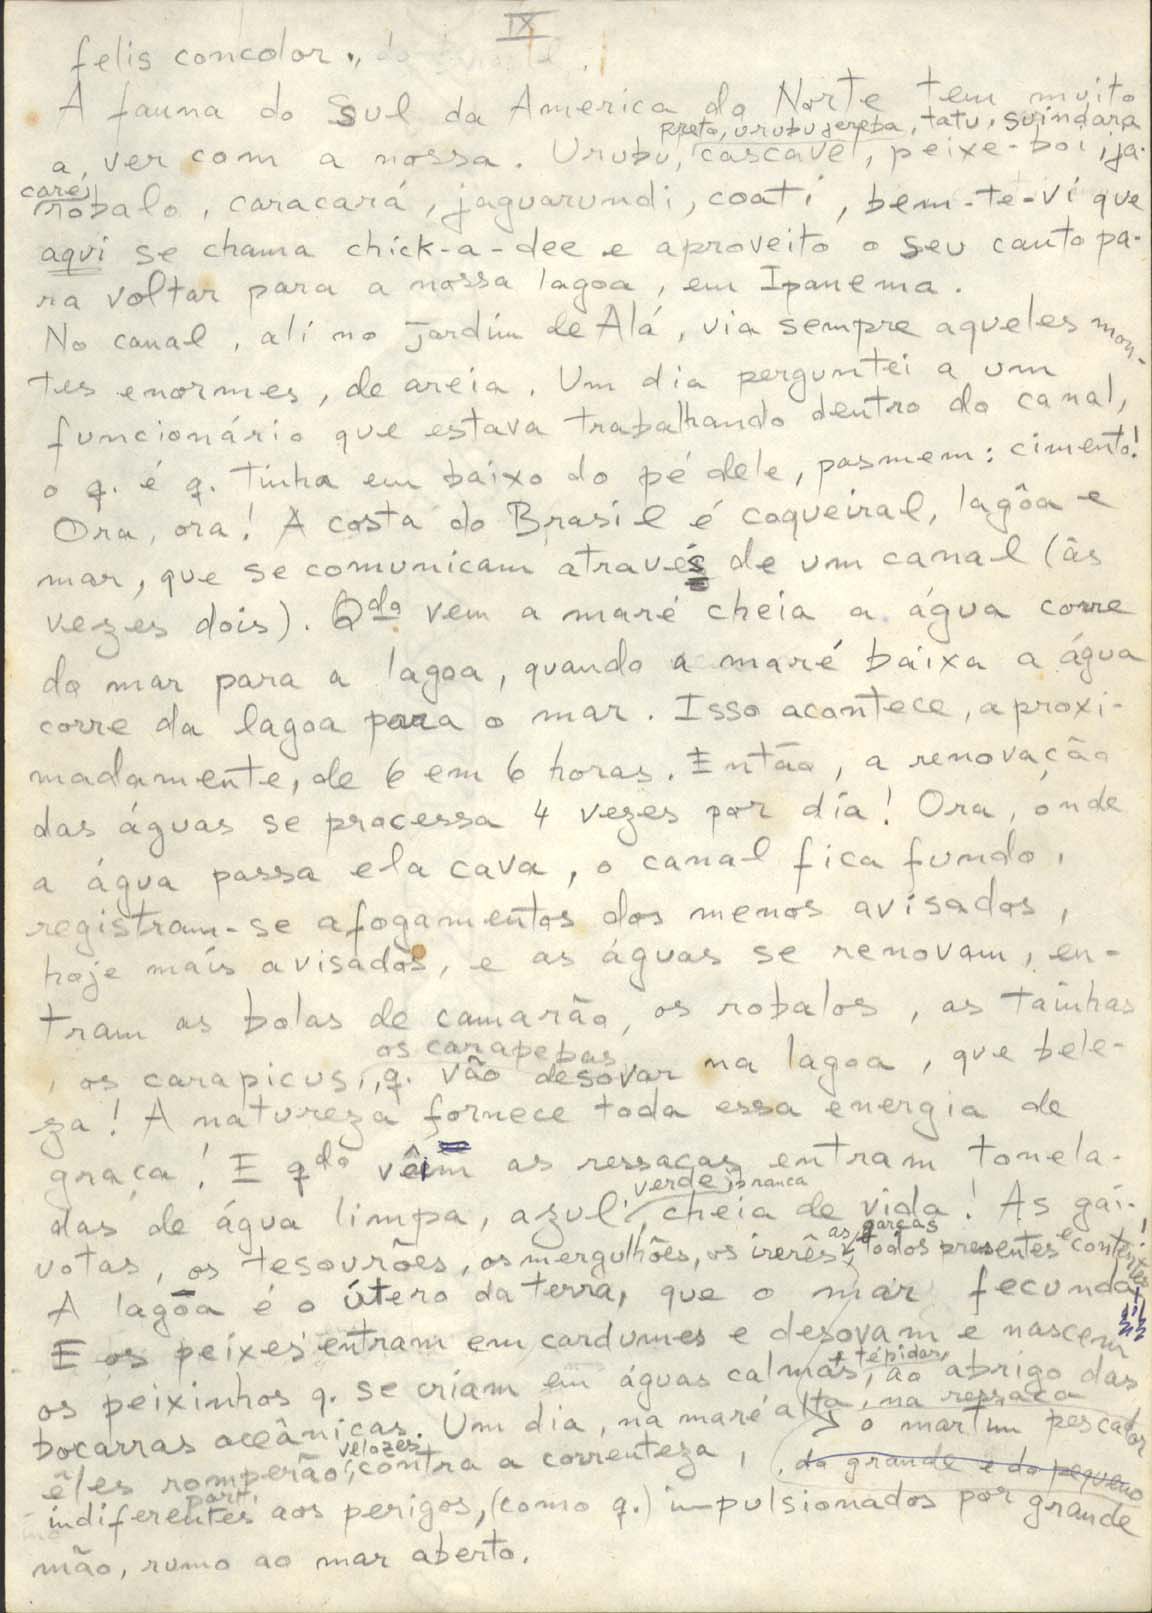 IX
felis concolor.,
A fauna do Sul da America do Norte tem muito
preto, urubu jereba, tatu, suindara
a ver com a nossa. Urubu, cascavel, peixe-boi, ja-
caré,
robalo, caracará, jaguarundi, coati, bem-te-vi que
aqui se chama chick-a-dee e aproveito o seu canto pa-
ra voltar para a nossa lagoa, em Ipanema.
No canal, ali no jardim de Alá, via sempre aqueles mon-
tes enormes, de areia. Um dia perguntei a um
funcionário que estava trabalhando dentro do canal,
o q. é q. tinha em baixo do pé dele, pasmem: cimento!
Ora, ora! A costa do Brasil é coqueiral, lagôa e
mar, que se comunicam através de um canal (às
vezes dois). Qdo vem a maré cheia a água corre
do mar para a lagoa, quando a maré baixa a água
corre da lagoa para o mar. Isso acontece, aproxi-
madamente, de 6 em 6 horas. Então, a renovação
das águas se processa 4 vezes por dia! Ora, onde
a água passa ela cava, o canal fica fundo,
registram-se afogamentos dos menos avisados,
hoje mais avisados, e as águas se renovam, en-
tram as bolas de camarão, os robalos, as tainhas
os carapebas
, os carapicus, q. vão desovar na lagoa, que bele-
za! A natureza fornece toda essa energia de
graça! E qdo vêm as ressacas entram tonela-
verde, branca
das de água limpa, azul, cheia de vida! As gai-
as garças
votas, os tesourões, os mergulhões, os irerês, todos presentes e contentes!
A lagôa é o útero da terra, que o mar fecunda!
E os peixes entram em cardumes e desovam e nascem
e tépidas,
os peixinhos q. se criam em águas calmas, ao abrigo das
bocarras oceânicas. Um dia, na maré alta, na ressaca
o martim pescador
velozes
êles romperão, contra a correnteza,
do grande e do pequeno
indiferentes aos perigos, (como q.) impulsionados por grande
mão, rumo ao mar aberto.